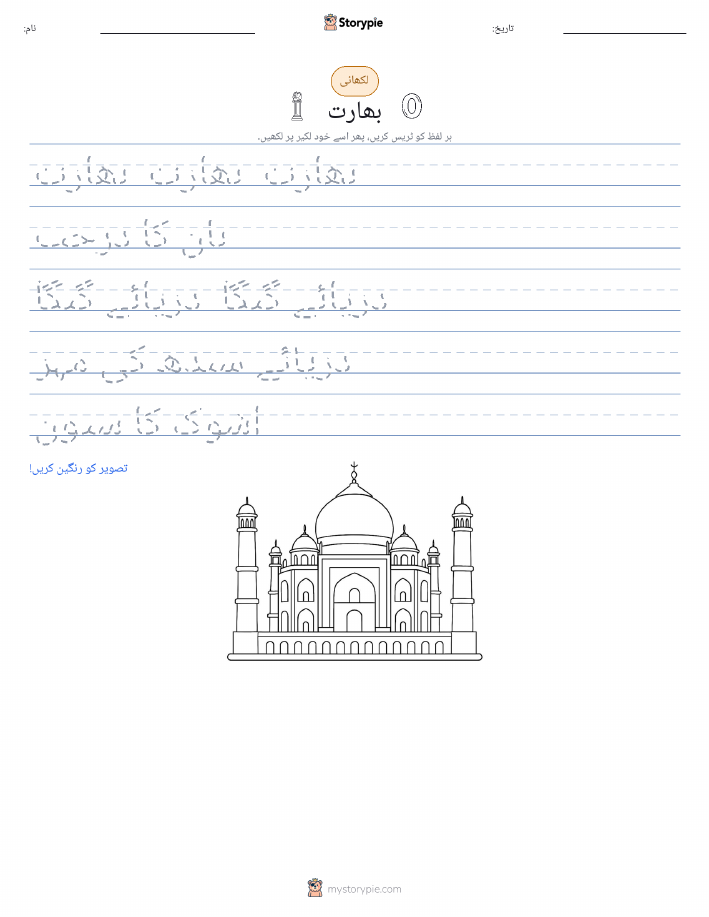 Storypie
نام:
تاریخ:
لکھائی
بھارت
ہر لفظ کو ٹریس کریں، پھر اسے خود لکیر پر لکھیں۔
بھارت بھارت بھارت
کا درخت
دریائے گنگا دریائے گنگا
دریائے سندھ کی مہر
اشوک کا ستون
تصویر کو رنگین کریں!
mystorypie.com